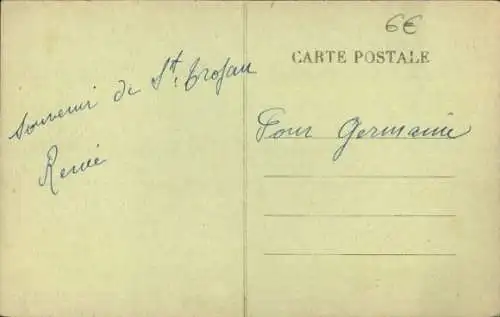 6€
CARTE POSTALE
Souvenir de St. Trojan
Renée
Pour Germaine